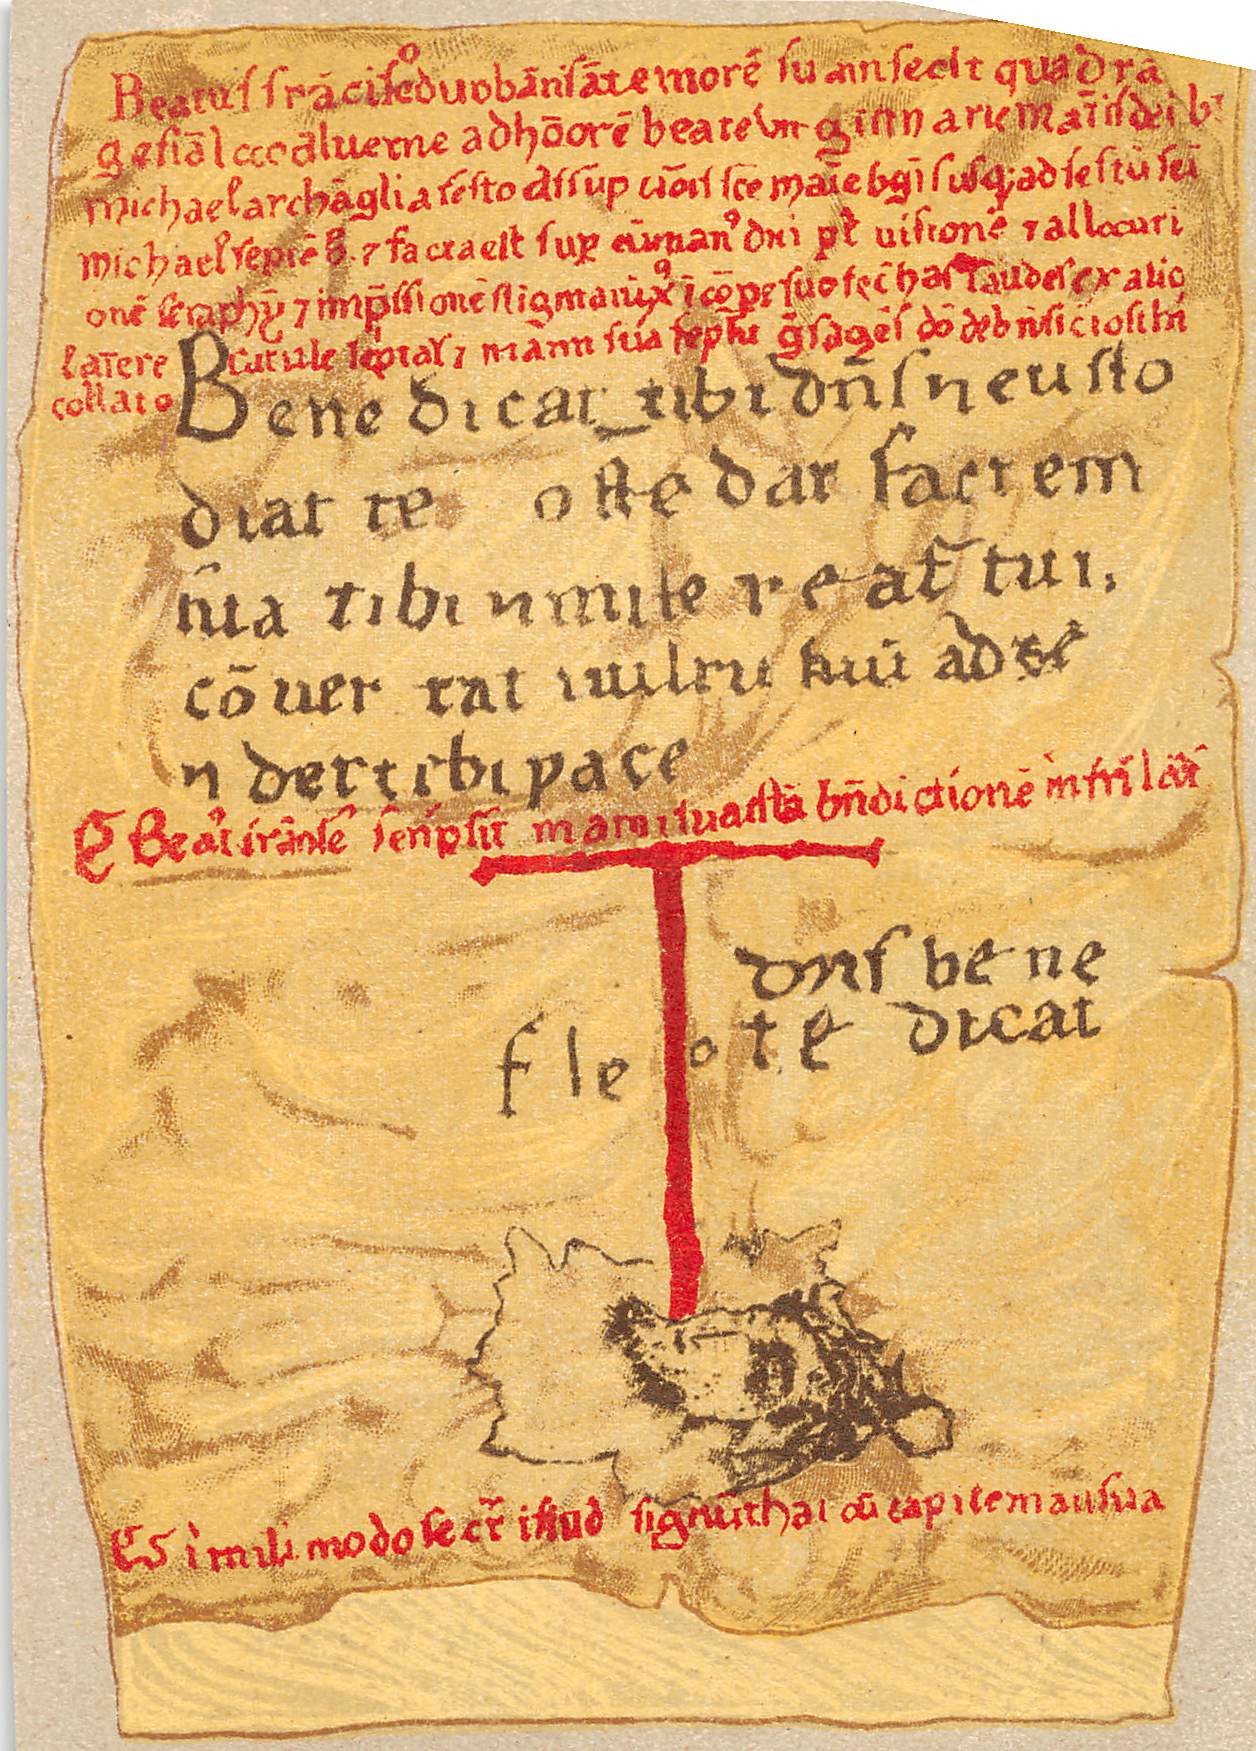 Beatus frāciscº duob ān̄ ān̄te morē suā fecit quadra
gesiāl ī loco aluerne ad hōorē beate virginis marie matris dei & bī
michael archāgli a festo assūp ūōis sce marie vgīs usq; ad festū scī
michael septēb. ⁊ facta est sup eū manº dn̄i p̄ visionē ⁊ allocuti
onē seraphȳ ⁊ imp̄ssionē stigmatū x̄ ī corpe suo fec̄ has laudes ex alio
latere catule sc̄ptas ⁊ manu sua sc̄psit grās agēs dō de b̄nficio sibi
collato
Benedicat tibi dn̄s ⁊ custo
diat te ostēdat faciem
suā tibi ⁊ misereat̄ tui.
cōvertat vultū suū ad te
⁊ det tibi pacē
Beat̄ frāciscº scripsit manu sua istā bn̄dictionē m̄ fr̄i leōi
dn̄s bene
f le o te dicat
Simili modo fecit istud signū thau cū capite manu sua